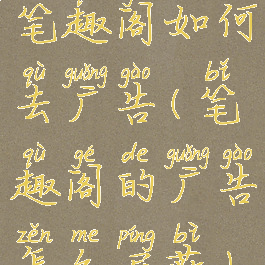 笔趣阁如何
qù guǎng gào bǐ
去广告(笔
qù gé de guǎng gào
趣阁的广告
zěn me píng bì
怎么屏蔽)